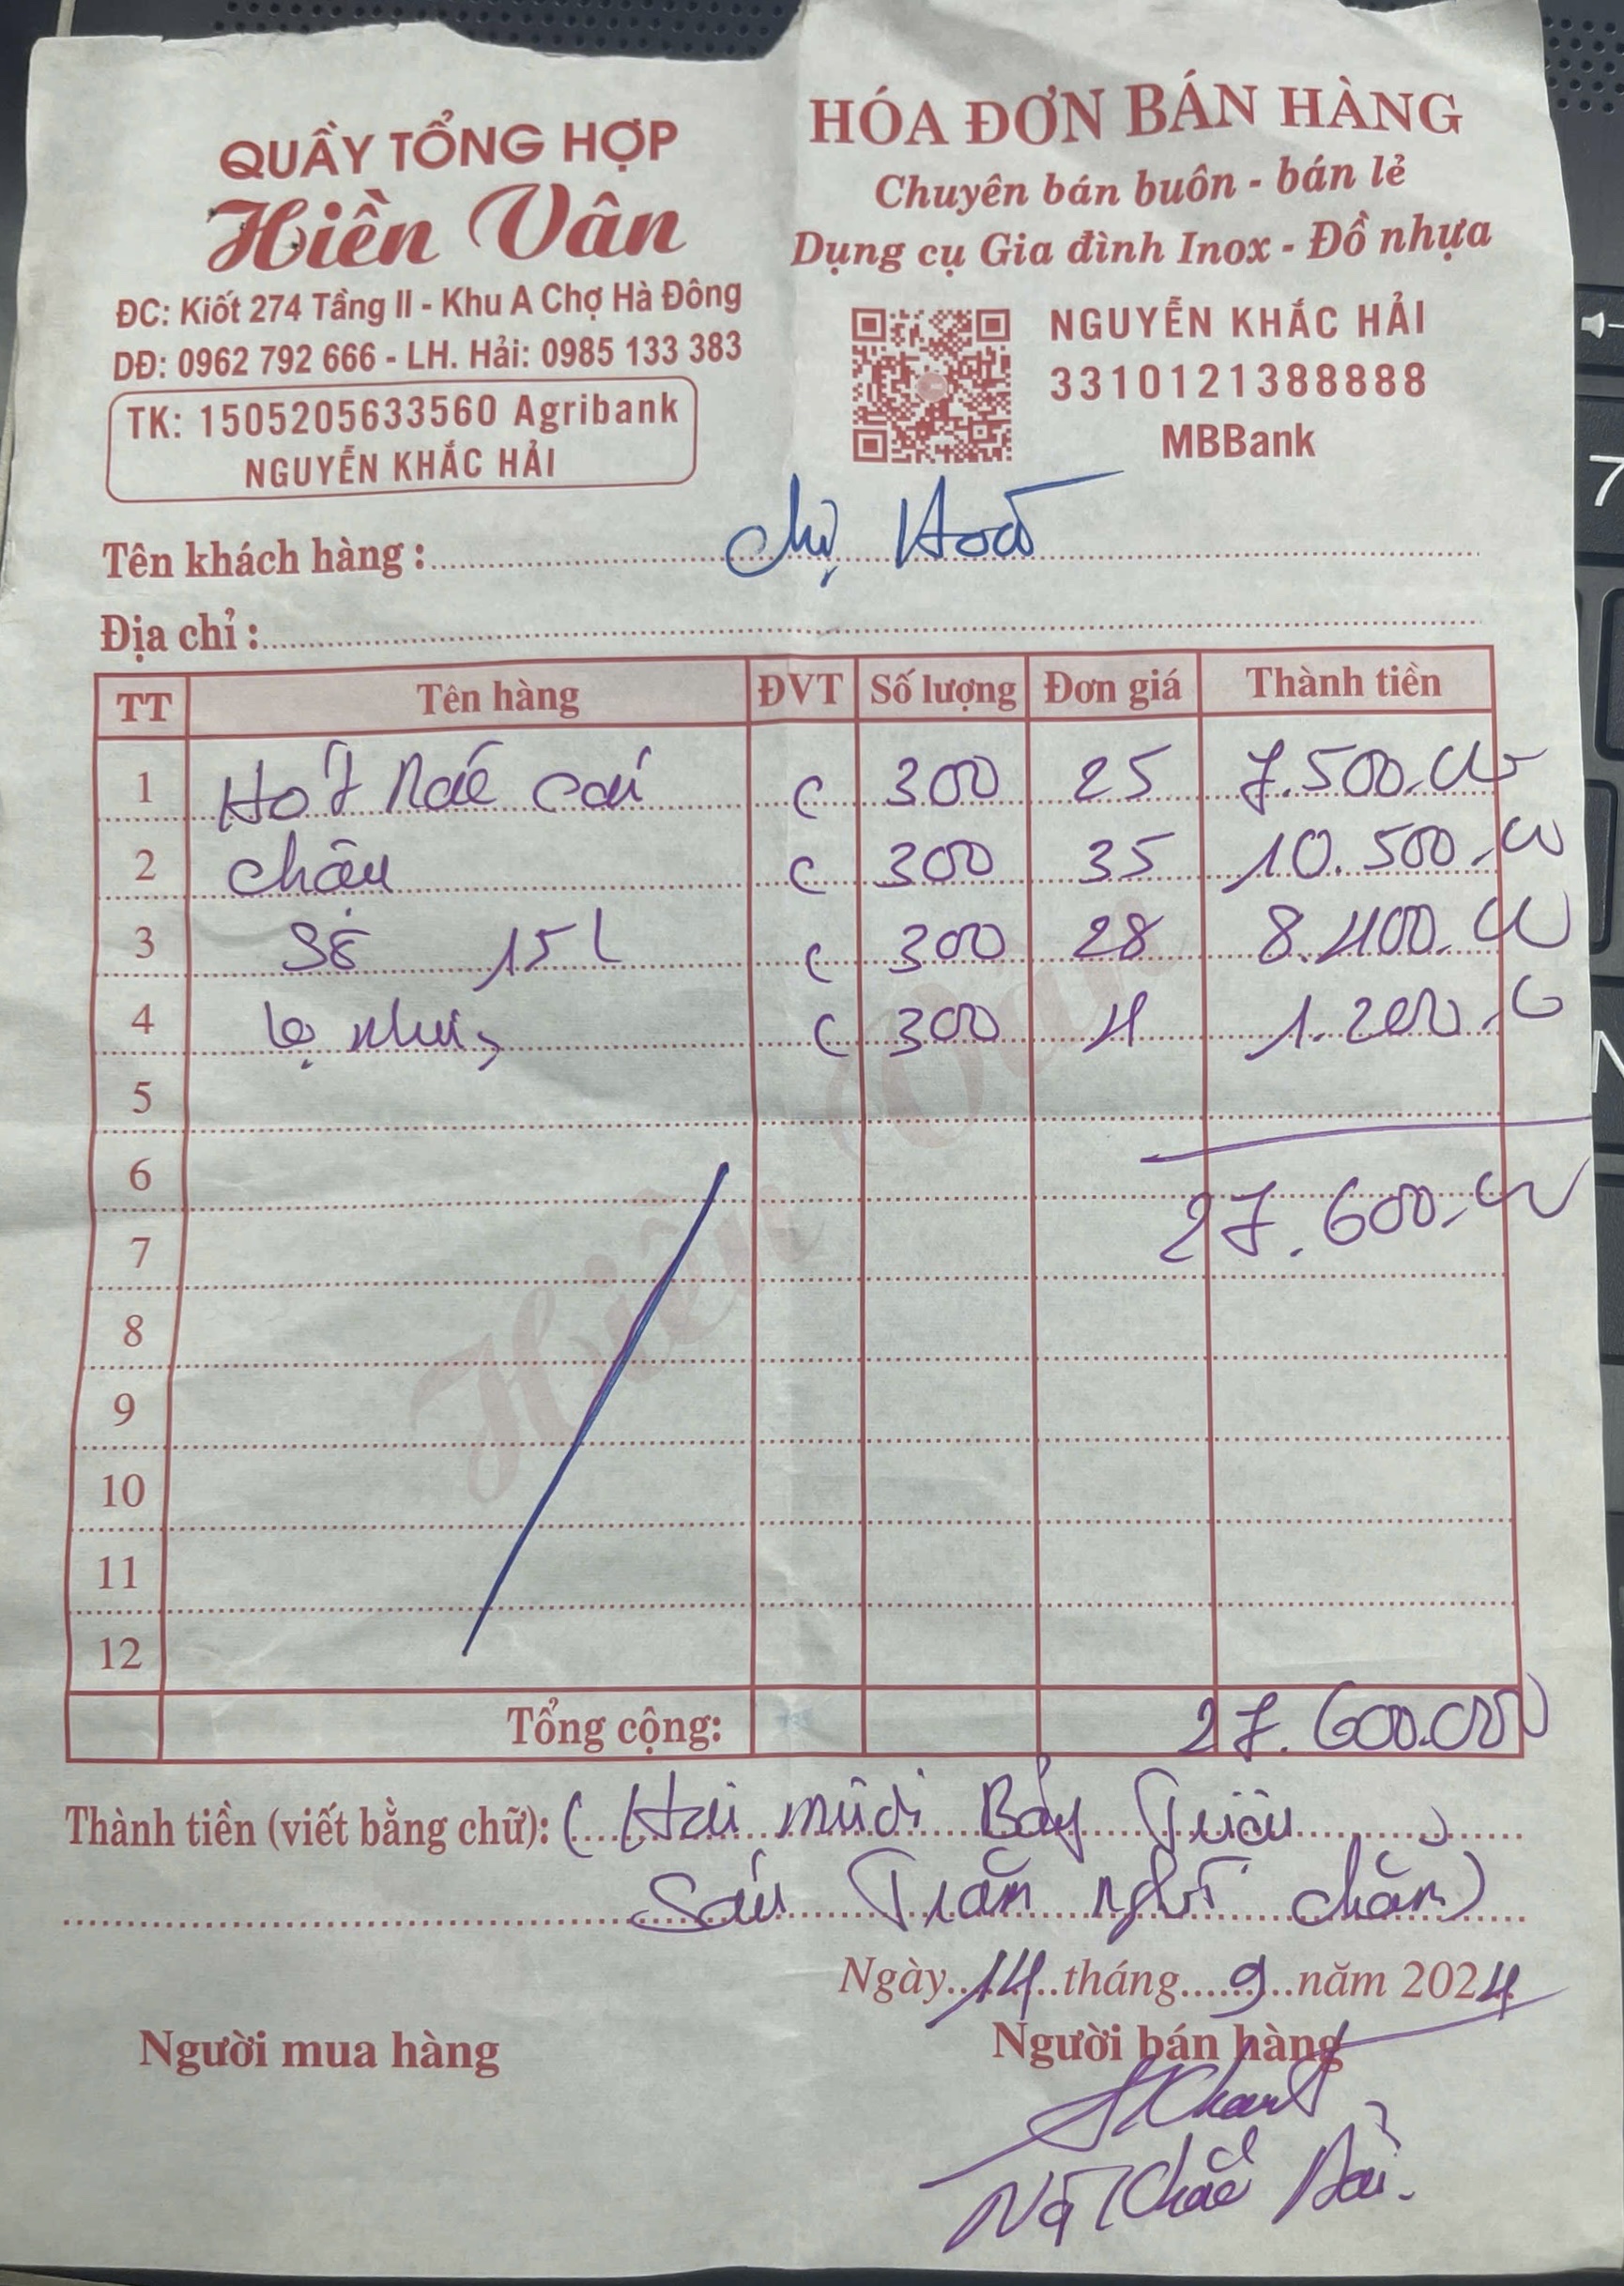 QUẦY TỔNG HỢP
Hiền Vân
ĐC: Kiốt 274 Tầng II - Khu A Chợ Hà Đông
DĐ: 0962 792 666 - LH. Hải: 0985 133 383
TK: 1505205633560 Agribank
NGUYỄN KHẮC HẢI
HÓA ĐƠN BÁN HÀNG
Chuyên bán buôn - bán lẻ
Dụng cụ Gia đình Inox - Đồ nhựa
NGUYỄN KHẮC HẢI
3310121388888
MBBank
Tên khách hàng: Chị Hoà
Địa chỉ:
TT Tên hàng ĐVT Số lượng Đơn giá Thành tiền
1 Hót Rác cái C 300 25 7.500.
2 Chậu C 300 35 10.500.
3 Sô 15l C 300 28 8.400.
4 lọ C 300 4 1.200.
5
6
27.600.
7
8
9
10
11
12
Tổng cộng: 27.600.000
Thành tiền (viết bằng chữ): (Hai mươi Bảy Triệu
Sáu Trăm nghì chẵn)
Ngày 14 tháng 9 năm 2024
Người mua hàng Người bán hàng
Khắc Hải
Hiền Vân